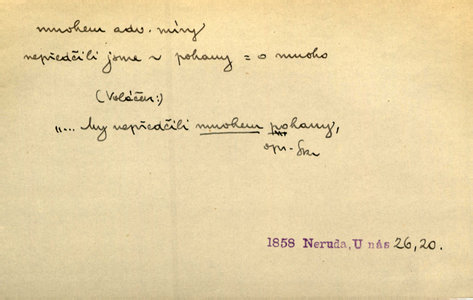 mnohem adv. míry
nepředčili jsme v pohany = o mnoho
(Voláček:)
"... My nepředčili mnohem pohany,
opr.
1858 Neruda, U nás 26, 20.